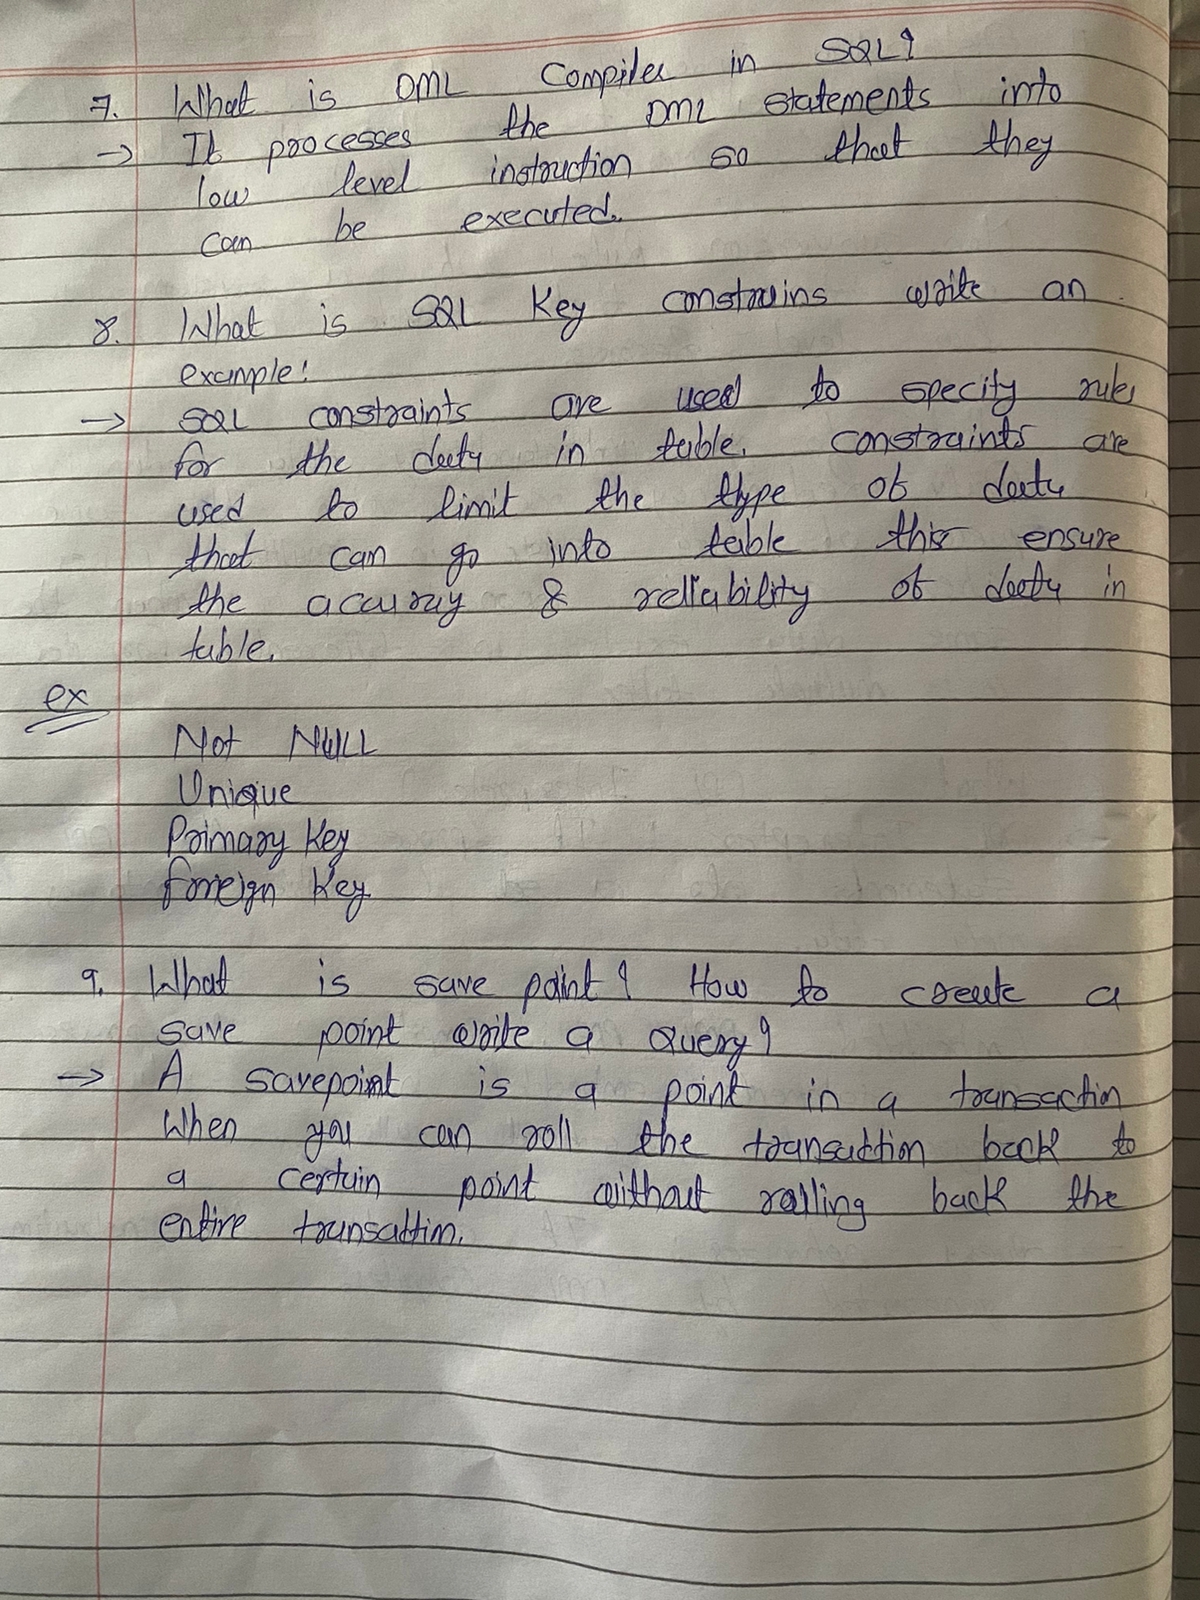 7. What is DML Compiler in SQL?
→ It processes the DML statements into
low level instruction so that they
can be executed.
8. What is SQL Key constrains write an
example:
→ SQL constraints are used to specity rules
for the data in table. constraints are
used to limit the type of data
that can go into table this ensure
the accuracy & reliability of data in
table.
ex
Not NULL
Unique
Primary Key
foreign Key
9. What is save point? How to create a
save point write a query?
→ A savepoint is a point in a transaction
When you can roll the transaction back to
a certain point without rolling back the
entire transaction.